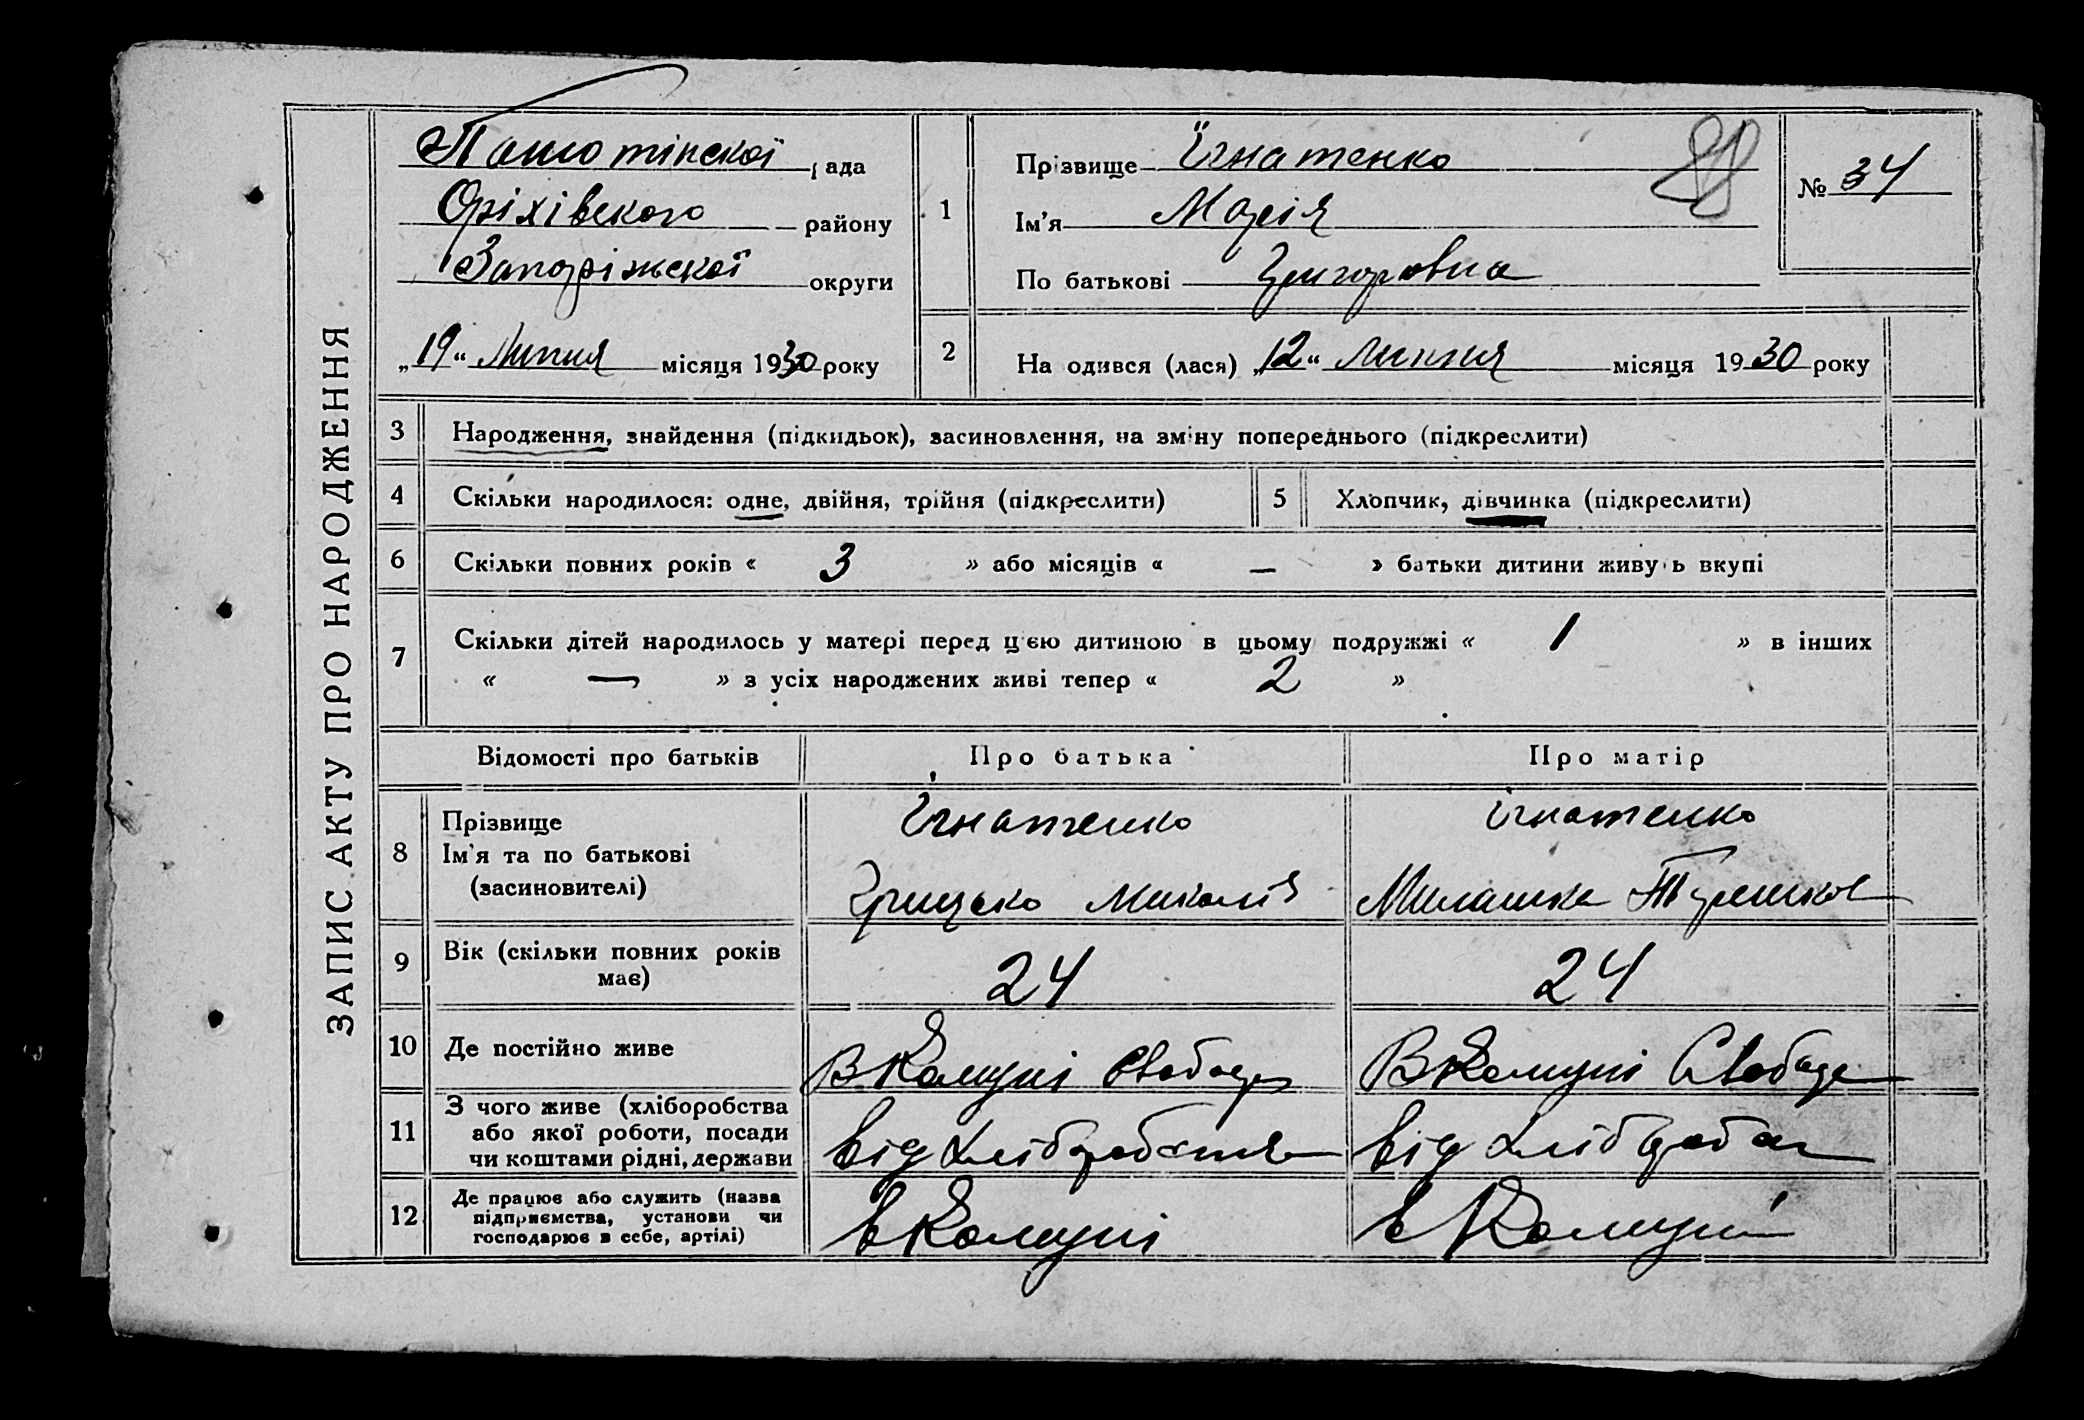 ЗАПИС АКТУ ПРО НАРОДЖЕННЯ
рада
Оріхівського району
Запоріжської округи
„19“ Липня місяця 1930 року
1
Прізвище Ігнатенко
Ім'я Марія
По батькові Григоровна
№ 34
2
На одився (лася) „12“ Липня місяця 1930 року
3 Народження, знайдення (підкидьок), засиновлення, на зміну попереднього (підкреслити)
4 Скільки народилося: одне, двійня, трійня (підкреслити)
5 Хлопчик, дівчинка (підкреслити)
6 Скільки повних років « 3 » або місяців « — » батьки дитини живуть вкупі
7 Скільки дітей народилось у матері перед цією дитиною в цьому подружжі « 1 » в інших
« — » з усіх народжених живі тепер « 2 »
Відомості про батьків Про батька Про матір
8 Прізвище Ігнатенко Ігнатенко
Ім'я та по батькові
(засновителі) Грицько Миколів Милашка
9 Вік (скільки повних років
має) 24 24
10 Де постійно живе В Комуні Свобода В Комуні Свобода
11 З чого живе (хліборобства
або якої роботи, посади
чи коштами рідні, держави від хліборобства від хліборобства
12 Де працює або служить (назва
підприємства, установи чи
господарює в себе, артілі) в Комуні в Комуні